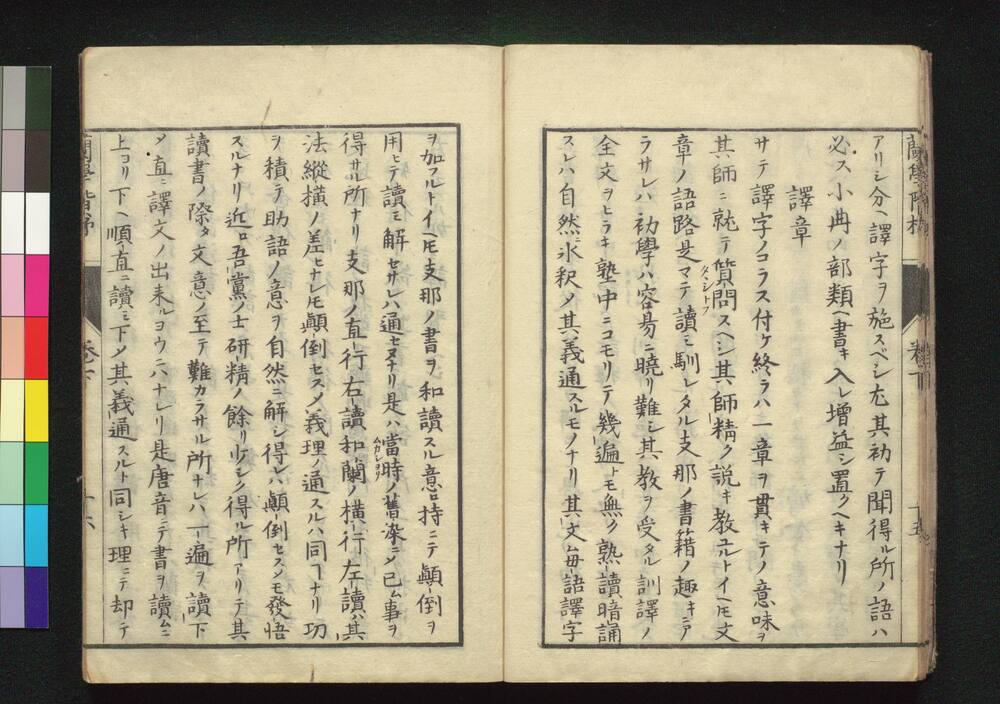 蘭學階梯 卷下 十五
アリシ分ヘ譯字ヲ施スベシ尤其初テ聞得ル所ノ語ハ
必ス小冊ノ部類ヘ書キ入レ増益シ置クヘキナリ
譯章
サテ譯字ノコラス付ケ終ラハ一章ヲ貫キテノ意味ヲ
其師ニ就テ質問タシトフスヘシ其師精ク説キ教ユルトイヘ𪜈文
章ノ語路是マテ讀ミ馴レタル支那ノ書籍ノ趣キニア
ラサレハ初學ハ容昜ニ曉リ難シ其教ヲ受タル訓譯ノ
全文ヲヒラキ塾中ニコモリテ幾遍トモ無ク熟讀暗誦
スレハ自然ニ氷釈メ其義通スルモノナリ其文毎語譯字
ヲ加フルトイヘ𪜈支那ノ書ヲ和讀スル意ロ持ニテ顛倒ヲ
用ヒテ讀ミ解セサレハ通セヌナリ是ハ當時ムカシヨリノ舊染ニメ已ム事ヲ
得サル所ナリ支那ノ直行右讀和蘭ノ横行左讀ハ其
法縱横ノ差ヒナレ𪜈顛倒セスメ義理ノ通スルハ同ヿナリ功
ヲ積テ助語ノ意ヲ自然ニ解シ得レハ顛倒セスメモ發悟
スルナリ近ロ吾黨ノ士研精ノ餘リ少シク得ル所アリテ其
讀書ノ際タ文意ノ至テ難カラサル所ナレハ一遍ヲ讀下
メ直ニ譯文ノ出来ルヨウニハナレリ是唐音ニテ書ヲ讀ムニ
上ヨリ下ヘ順直ニ讀ミ下メ其義通スルト同シキ理ニテ却テ
蘭學階梯 卷下 十六